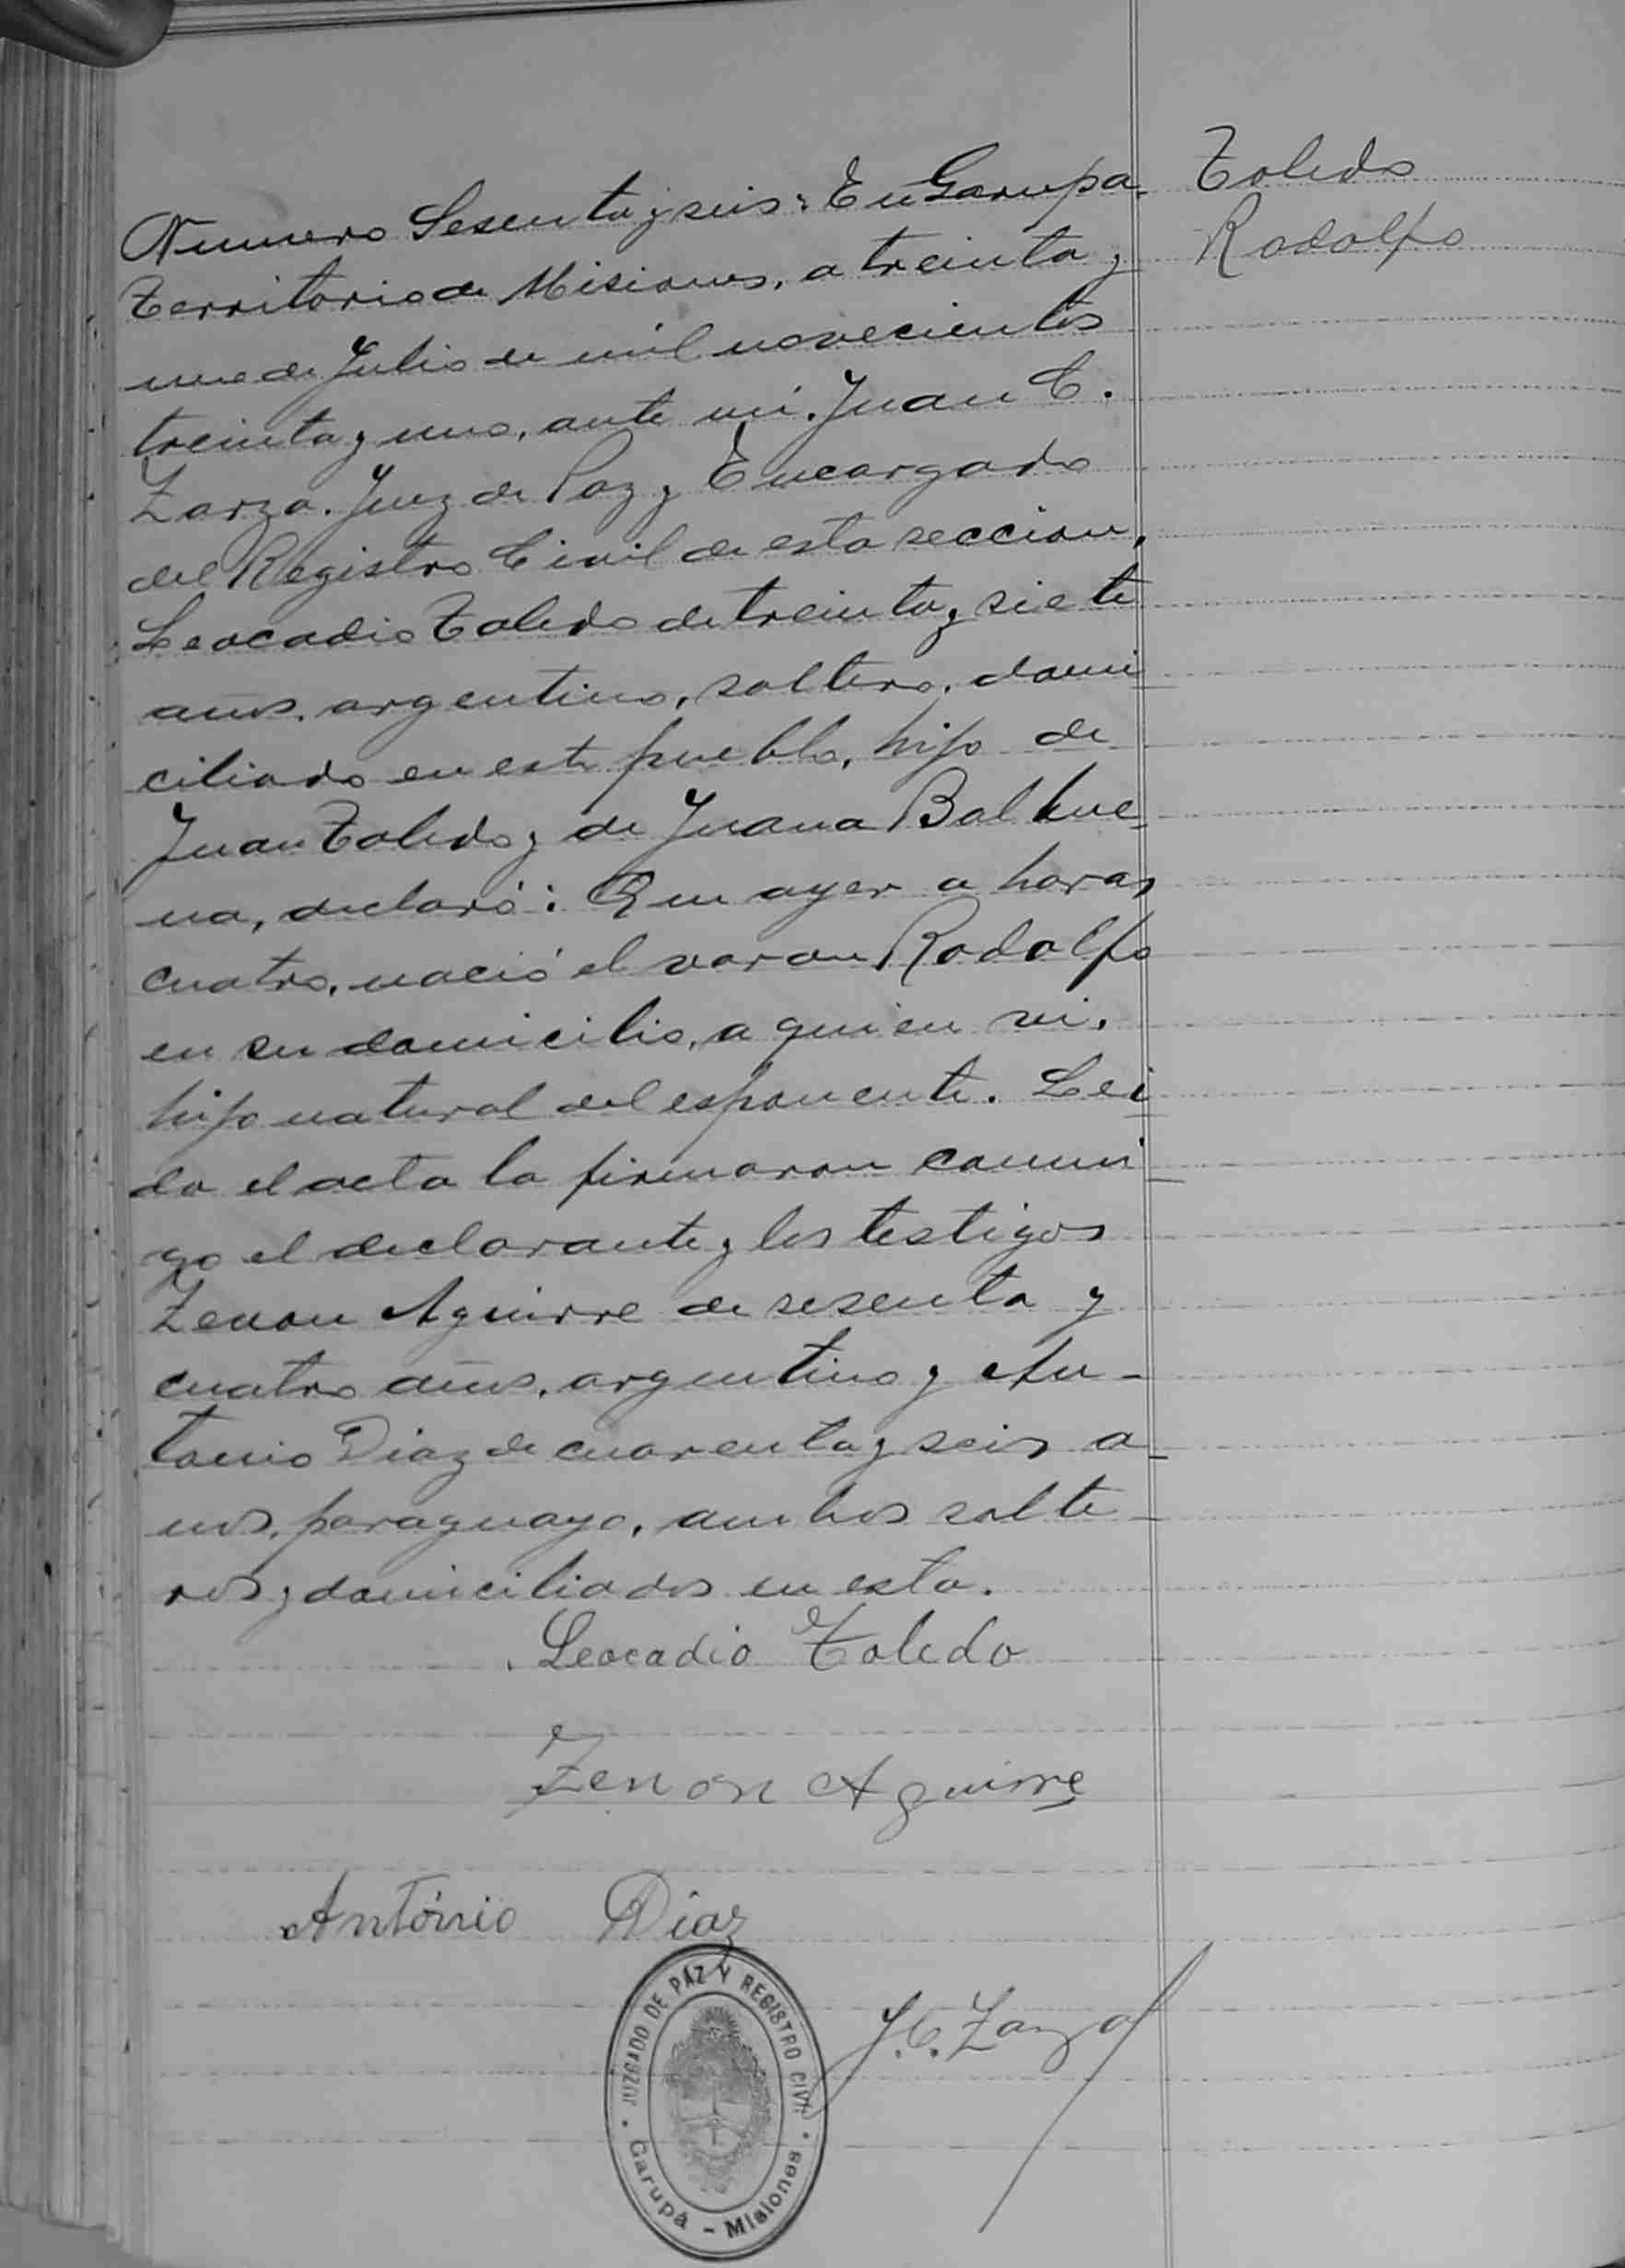 Toledo
Rodolfo
Numero Sesenta y seis: En Garupa
Territorio de Misiones, a treinta y
uno de Julio de mil novecientos
treinta y uno, ante mi. Juan C.
Zarza. Juez de Paz y Encargado
del Registro Civil de esta seccion,
Leocadio Toledo de treinta y siete
años, argentino, soltero, domi
ciliado en este pueblo, hijo de
Juan Toledo y de Juana Balbue-
na, declaró: Que ayer a horas
cuatro, nació el varon Rodolfo
en su domicilio, a quien vi.
hijo natural del esponente. Lei
da el acta la firmaron conmi
go el declarante y los testigos
Zenon Aguirre de sesenta y
cuatro años, argentino y An-
tonio Diaz de cuarenta y seis a-
ños, paraguayo, ambos solte-
ros y domiciliados en esta.
Leocadio Toledo
Zenon Aguirre
António Díaz
J. C. Zarza
JUZGADO DE PAZ Y REGISTRO CIVIL
Garupá - Misiones